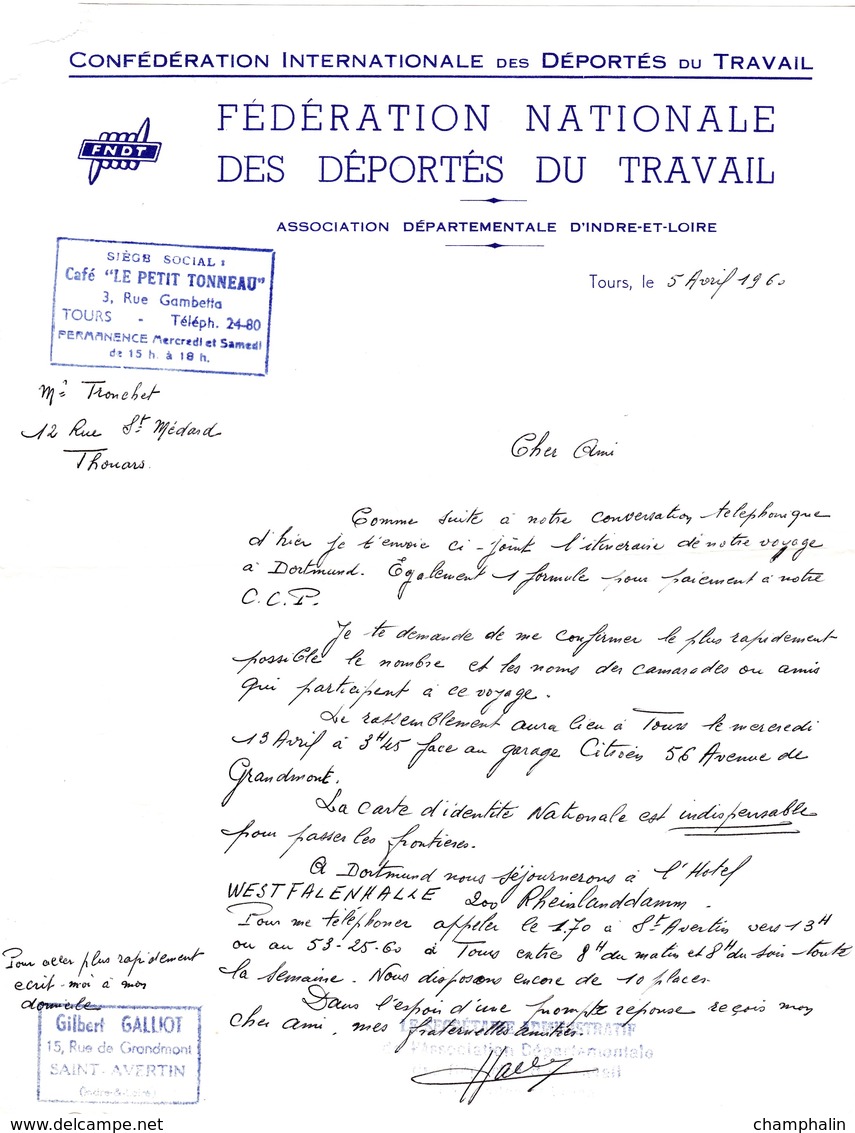 CONFÉDÉRATION INTERNATIONALE DES DÉPORTÉS DU TRAVAIL
FÉDÉRATION NATIONALE
DES DÉPORTÉS DU TRAVAIL
FNDT
ASSOCIATION DÉPARTEMENTALE D'INDRE-ET-LOIRE
SIÈGE SOCIAL :
Café "LE PETIT TONNEAU"
3, Rue Gambetta
TOURS - Téléph. 24-80
PERMANENCE Mercredi et Samedi
de 15 h. à 18 h.
Tours, le 5 Avril 1960
Mr Tronchet
12 Rue St Médard
Thouars.
Cher Ami
Comme suite à notre conversation telephonique
d'hier je t'envoie ci-joint l'itineraire de notre voyage
à Dortmund. Également 1 formule pour paiement à notre
C.C.P.
Je te demande de me confirmer le plus rapidement
possible le nombre et les noms des camarades ou amis
qui participent à ce voyage.
Le rassemblement aura lieu à Tours le mercredi
13 Avril à 3H45 face au garage Citroën 56 Avenue de
Grandmont.
La carte d'identité Nationale est indispensable
pour passer les frontieres.
A Dortmund nous séjournerons à l'Hotel
WESTFALENHALLE 200 Rheinlanddamm.
Pour me téléphoner appeler le 170 à St Avertin vers 13H
ou au 53-25-60 à Tours entre 8H du matin et 8H du soir toute
la semaine. Nous disposons encore de 10 places.
Dans l'espoir d'une prompte reponse reçois mon
cher ami, mes fraternelles amitiés.
Pour aller plus rapidement
ecrit-moi à mon
domicile
Gilbert GALLIOT
15, Rue de Grandmont
SAINT-AVERTIN
(Indre-&-Loire)
LE SECRÉTAIRE ADMINISTRATIF
de l'Association Départementale
www.delcampe.net
champhalin